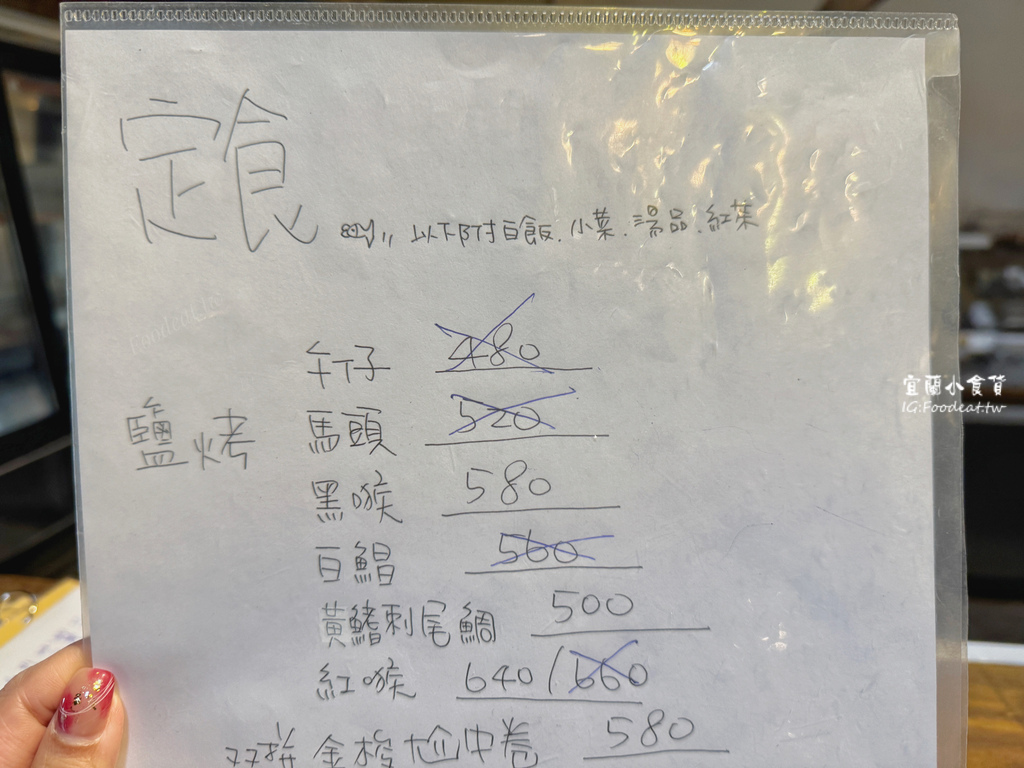 定食 以下附白飯.小菜.湯品.紅茶
午仔 480
馬頭 520
鹽烤
黑喉 580
白鯧 560
黃鰭刺尾鯛 500
紅喉 640/660
双拼 金梭 尬 中卷 580
宜蘭小食貨
IG:Foodcat.tw